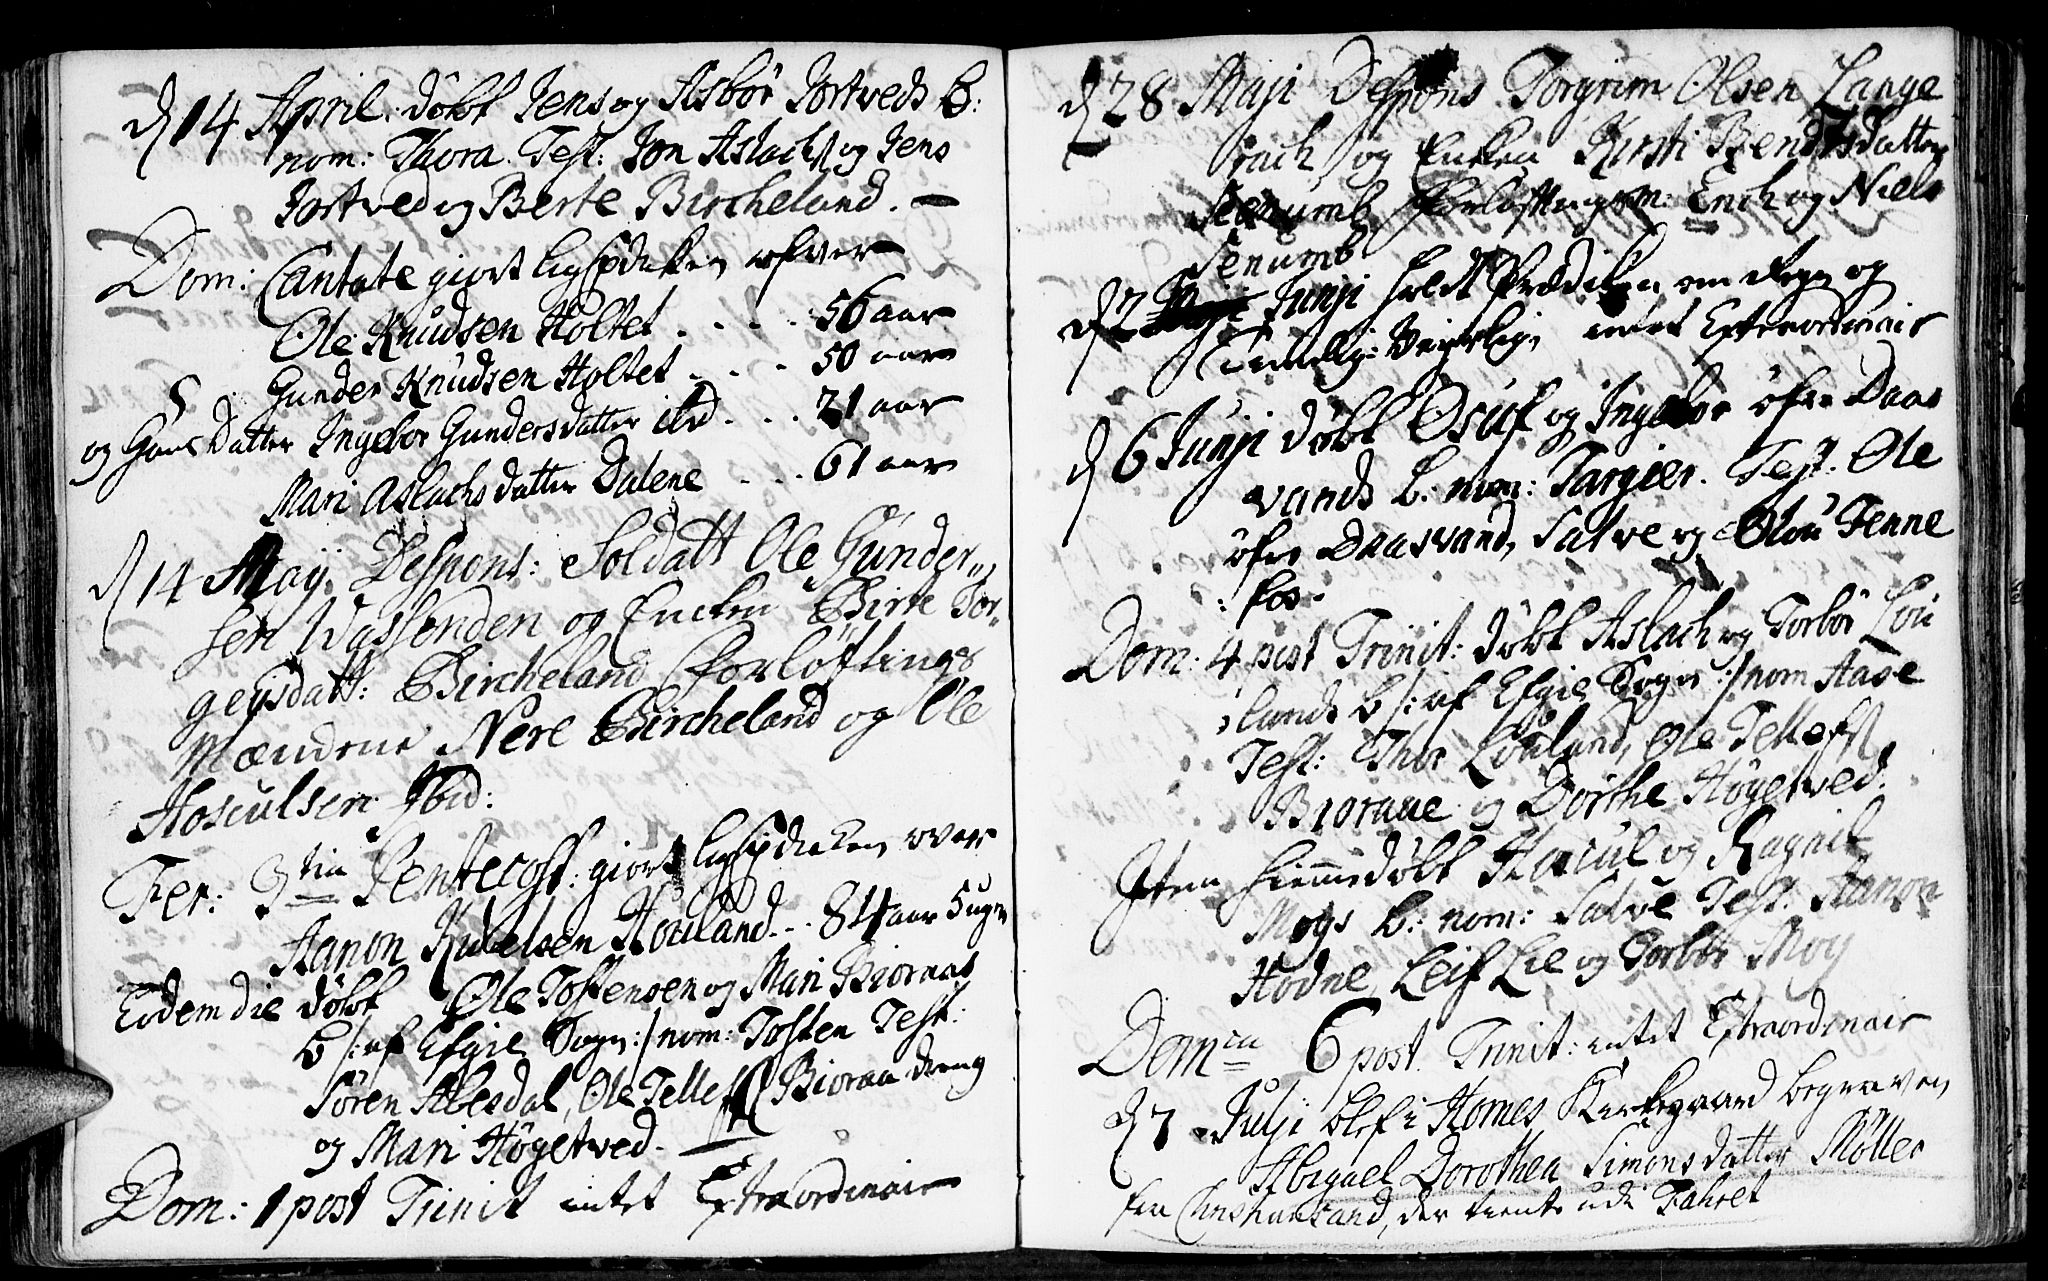 d 14 April. döbt Jens og Asbör Jortveds B:
nom: Thora. Test: Jon Aslachs og Jens
Jortved og Berte Bircheland. —
Dom: Cantate giort ligprdiken ofver
Ole Knudsen Holtet . . . . 56 aar
Gunder Knudsen Holtet . . . 50 aar
og Hans Datter Ingebor Gundersdatter ibd . . . 21 aar
Mari Aslachsdatter Dalene . . . 61 aar
d 14 Maij. Despons: Soldatt Ole Gunder
sen Wassenden og Encken Birte Tor-
geijsdatt: Bircheland Forløftings
Mændene Nere Bircheland og Ole
Hosculsen Ibid:
Fer: 3tia Pentecost: giort ligprdicken over
Aanon Kittelsen Houland . . 84 aar 5 uger
Eodem die döbt Ole Tostensen og Mari Bioraas
B /: af Efgie Sogn :/ nom: Tosten Test:
Sören Abesdal, Ole Tellefs Bioraa dreng
og Mari Högetved. —
Dom: 1 post Trinit intet Extraordinair
d 28 Maji Despons Torgrim Olsen Lange
rach og Enken Kirsti Bendtsdatter
Senumb Forløftingsm: Erich og Niels
Senumb
d 2 Junji holdt Prædiken om Regn og
tienlig Veyrlig, intet Extraordinair
d 6 Junji döbt Osuf og Ingebor öfre Daas
vands B: nom: Targier. Test: Ole
öfre Daasvand, Salve og Olou Tenne
fos.
Dom: 4 post Trinit: döbt Aslach og Torbör Lou
lands B /: af Efgie Sogn :/ nom Aase
Test: Thor Louland, Ole Tellefs
Bioraae og Dorthe Högetved.
Item hiemmedöbt Hoscul og Ragnil
Moys B: nom: Salve Test: Aanon
Hodne, Leif Lie og Torbör Moy
Domca 6 post Trinit: intet Extraordinair
d 7 Julji blef i Hornes Kirkegaard begraven
Abigael Dorothea Simonsdatter Möller
fra Christiansand, der tiente udi Fahret